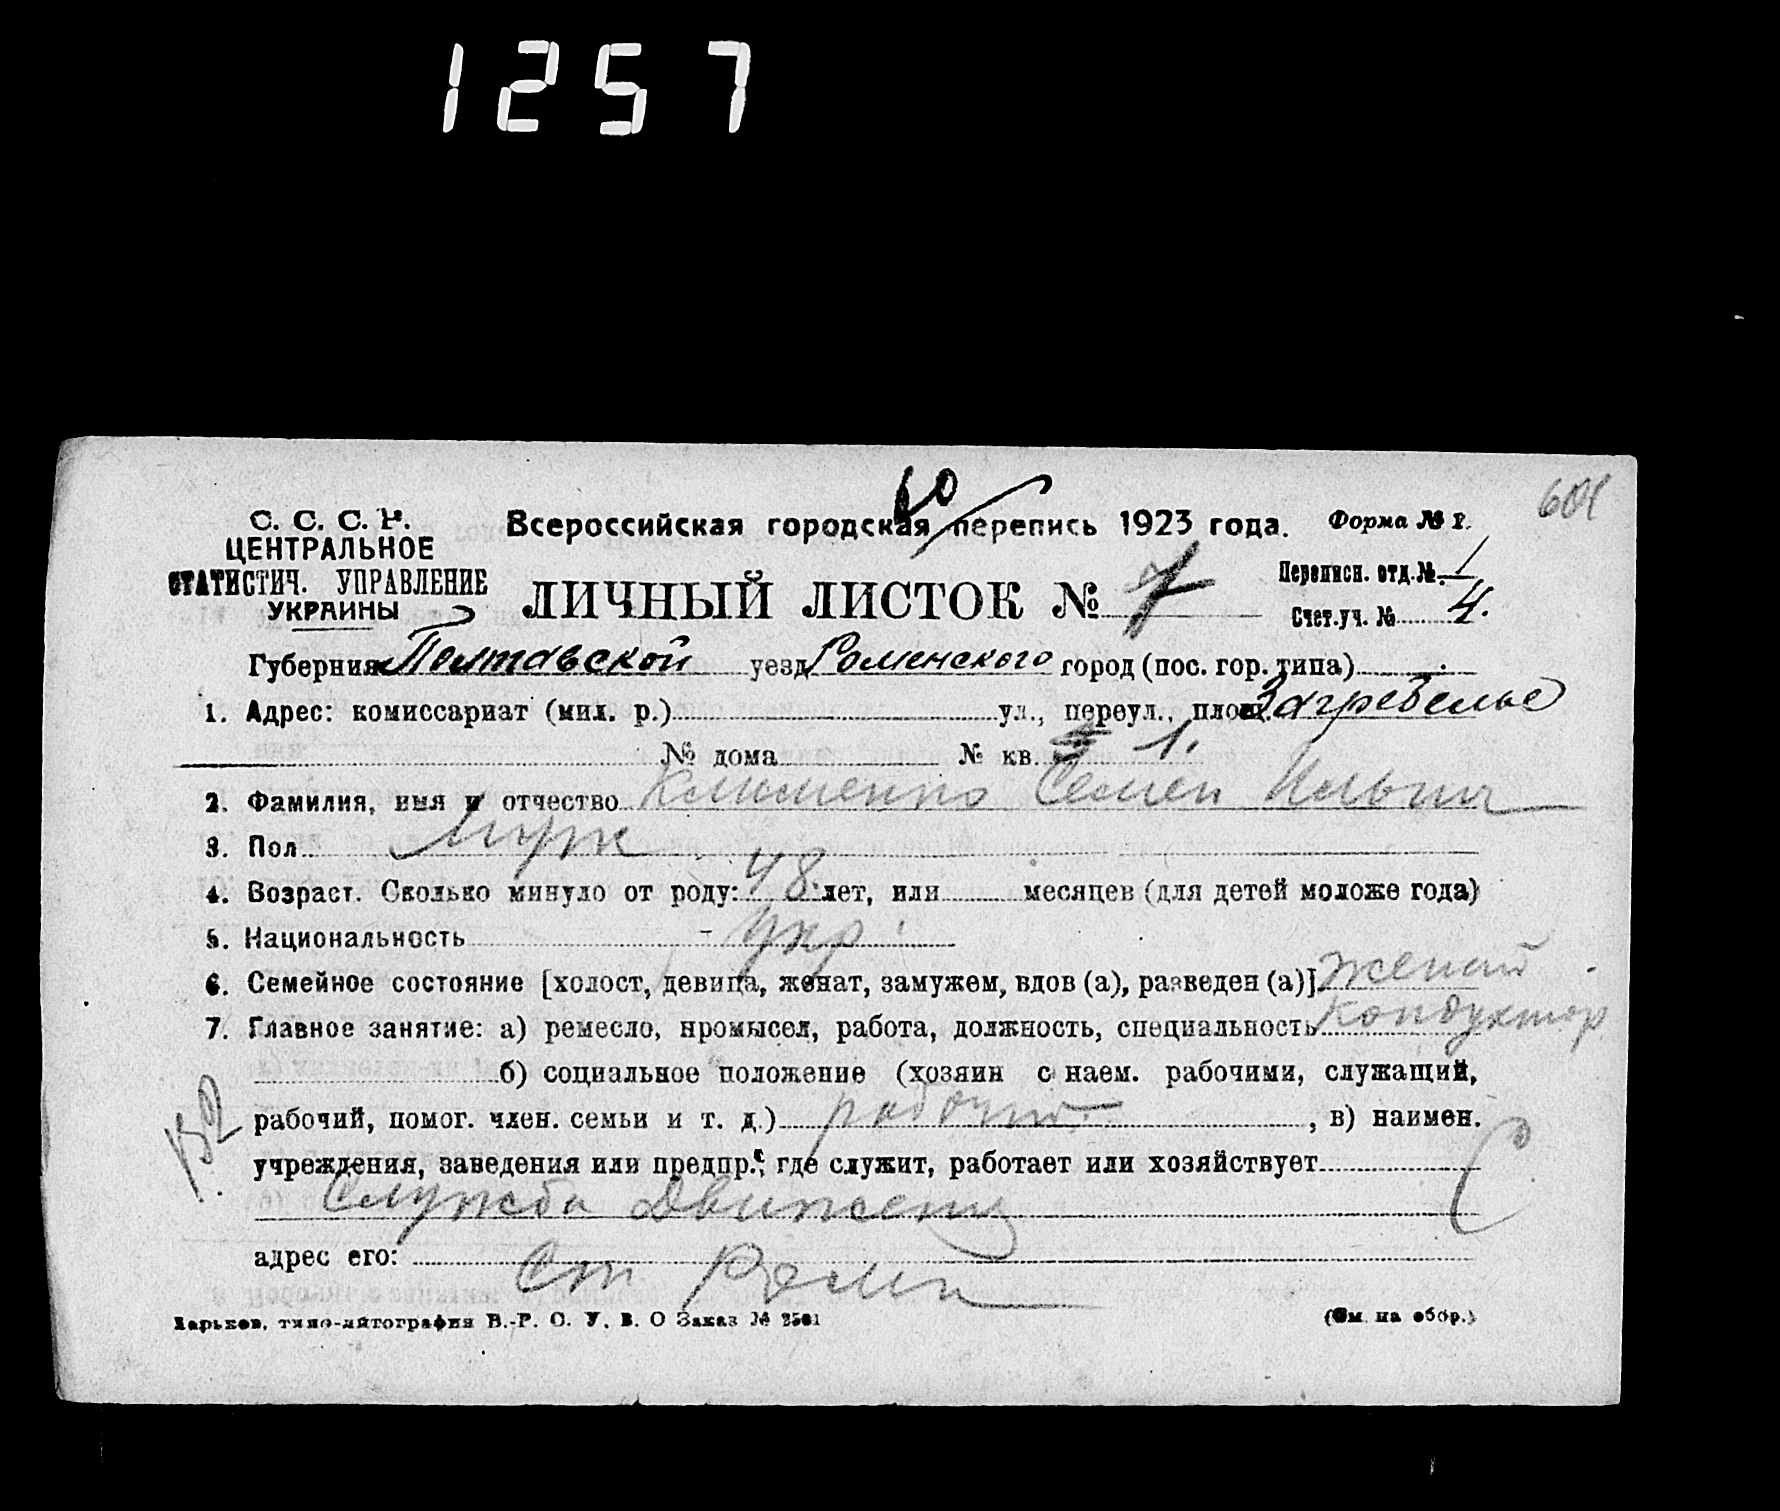 1257
60
601
С. С. С. Р.
ЦЕНТРАЛЬНОЕ
СТАТИСТИЧ. УПРАВЛЕНИЕ
УКРАИНЫ
Всероссийская городская перепись 1923 года.
Форма № 1.
ЛИЧНЫЙ ЛИСТОК № 7
Переписн. отд. № 1
Счет. уч. № 4.
Губерния Полтавской уезд Роменского город (пос. гор. типа)
1. Адрес: комиссариат (мил. р.) ул., переул., площ. Загребелье
№ дома № кв. 1.
2. Фамилия, имя и отчество Клименко Семен Ильич
3. Пол Муж
4. Возраст. Сколько минуло от роду: 48 лет, или месяцев (для детей моложе года)
5. Национальность укр.
6. Семейное состояние [холост, девица, женат, замужем, вдов (а), разведен (а)] женат
7. Главное занятие: а) ремесло, промысел, работа, должность, специальность кондуктор
б) социальное положение (хозяин с наем. рабочими, служащий,
рабочий, помог. член. семьи и т. д.) рабочий , в) наимен.
учреждения, заведения или предпр., где служит, работает или хозяйствует
Служба Движения
адрес его: Ст Ромн
Харьков, типо-литография В.-Р. С. У. В. О Заказ № 2501
(См. на обор.)